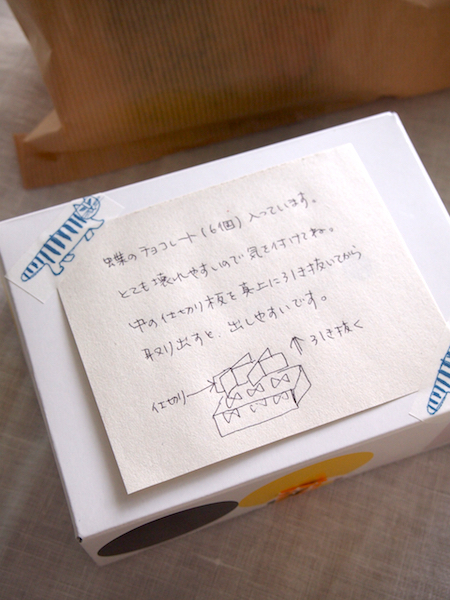 蝶のチョコレート(6個)入っています。
とても壊れやすいので気を付けてね。
中の仕切り板を真上に引き抜いてから
取り出すと、出しやすいです。
↑引き抜く
仕切り→